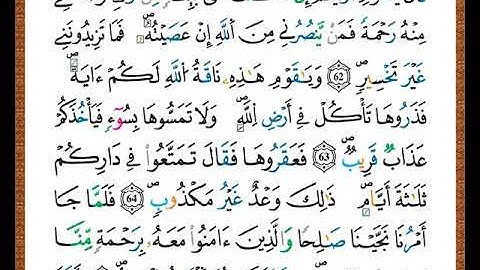 مِنْهُ رَحْمَةً فَمَنْ يَّنصُرُنِي مِنَ ٱللَّهِ إِنْ عَصَيْتُهُۥ فَمَا تَزِيدُونَنِي
غَيْرَ تَخْسِيرٍ ٦٢ وَيَٰقَوْمِ هَٰذِهِۦ نَاقَةُ ٱللَّهِ لَكُمْ ءَايَةً
فَذَرُوهَا تَأْكُلْ فِي أَرْضِ ٱللَّهِ وَلَا تَمَسُّوهَا بِسُوٓءٍ فَيَأْخُذَكُمْ
عَذَابٌ قَرِيبٌ ٦٣ فَعَقَرُوهَا فَقَالَ تَمَتَّعُوا۟ فِي دَارِكُمْ
ثَلَٰثَةَ أَيَّامٍ ذَٰلِكَ وَعْدٌ غَيْرُ مَكْذُوبٍ ٦٤ فَلَمَّا جَا
أَمْرُنَا نَجَّيْنَا صَٰلِحًا وَٱلَّذِينَ ءَامَنُوا۟ مَعَهُۥ بِرَحْمَةٍ مِّنَّا